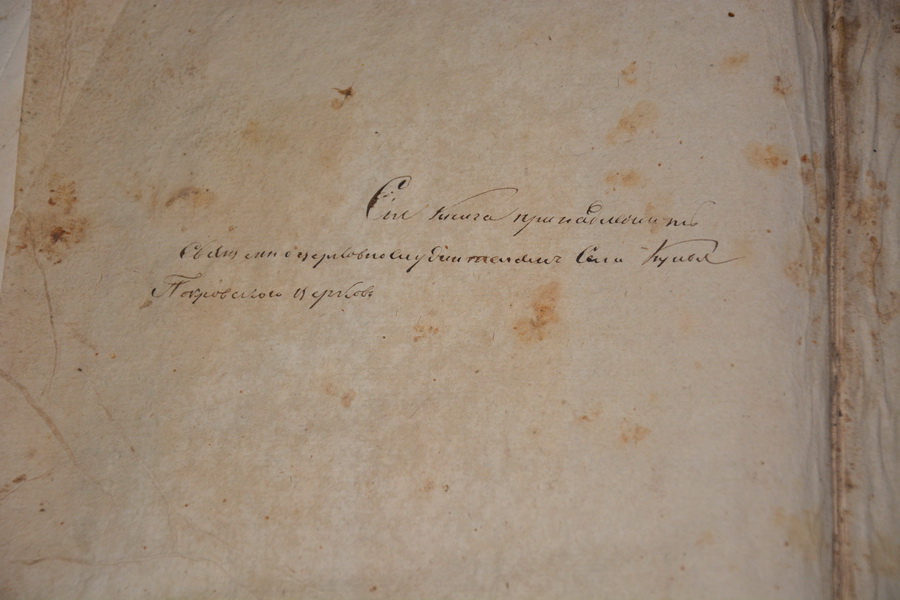 Сія книга принадлежитъ
Священноцерковнослужителямъ Села Кунья
Покровской церкви